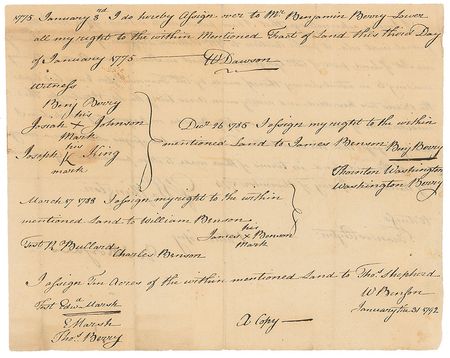 1775 January 3rd I do hereby Assign over to Mr Benjamin Berry Sener
all my right to the within Mentioned Tract of Land this third Day
of January 1775
W Dawson
Witness
Benj Berry
his
Josiah x Johnson
Mark
his
Joseph K King
mark
Decr 26 1785 I assign my right to the within
mentioned Land to James Benson Benj Berry
Thornton Washington
Washington Berry
March 17 1788 I assign my right to the within
mentioned Land to William Benson
his
James x Benson
Mark
Test R Bullard
Charles Benson
I assign Ten Acres of the within mentioned Land to Thos Shepherd
W Benson
January the 31 1792
Test Edwd Marsh
E Marsh
Thos Berry
A Copy